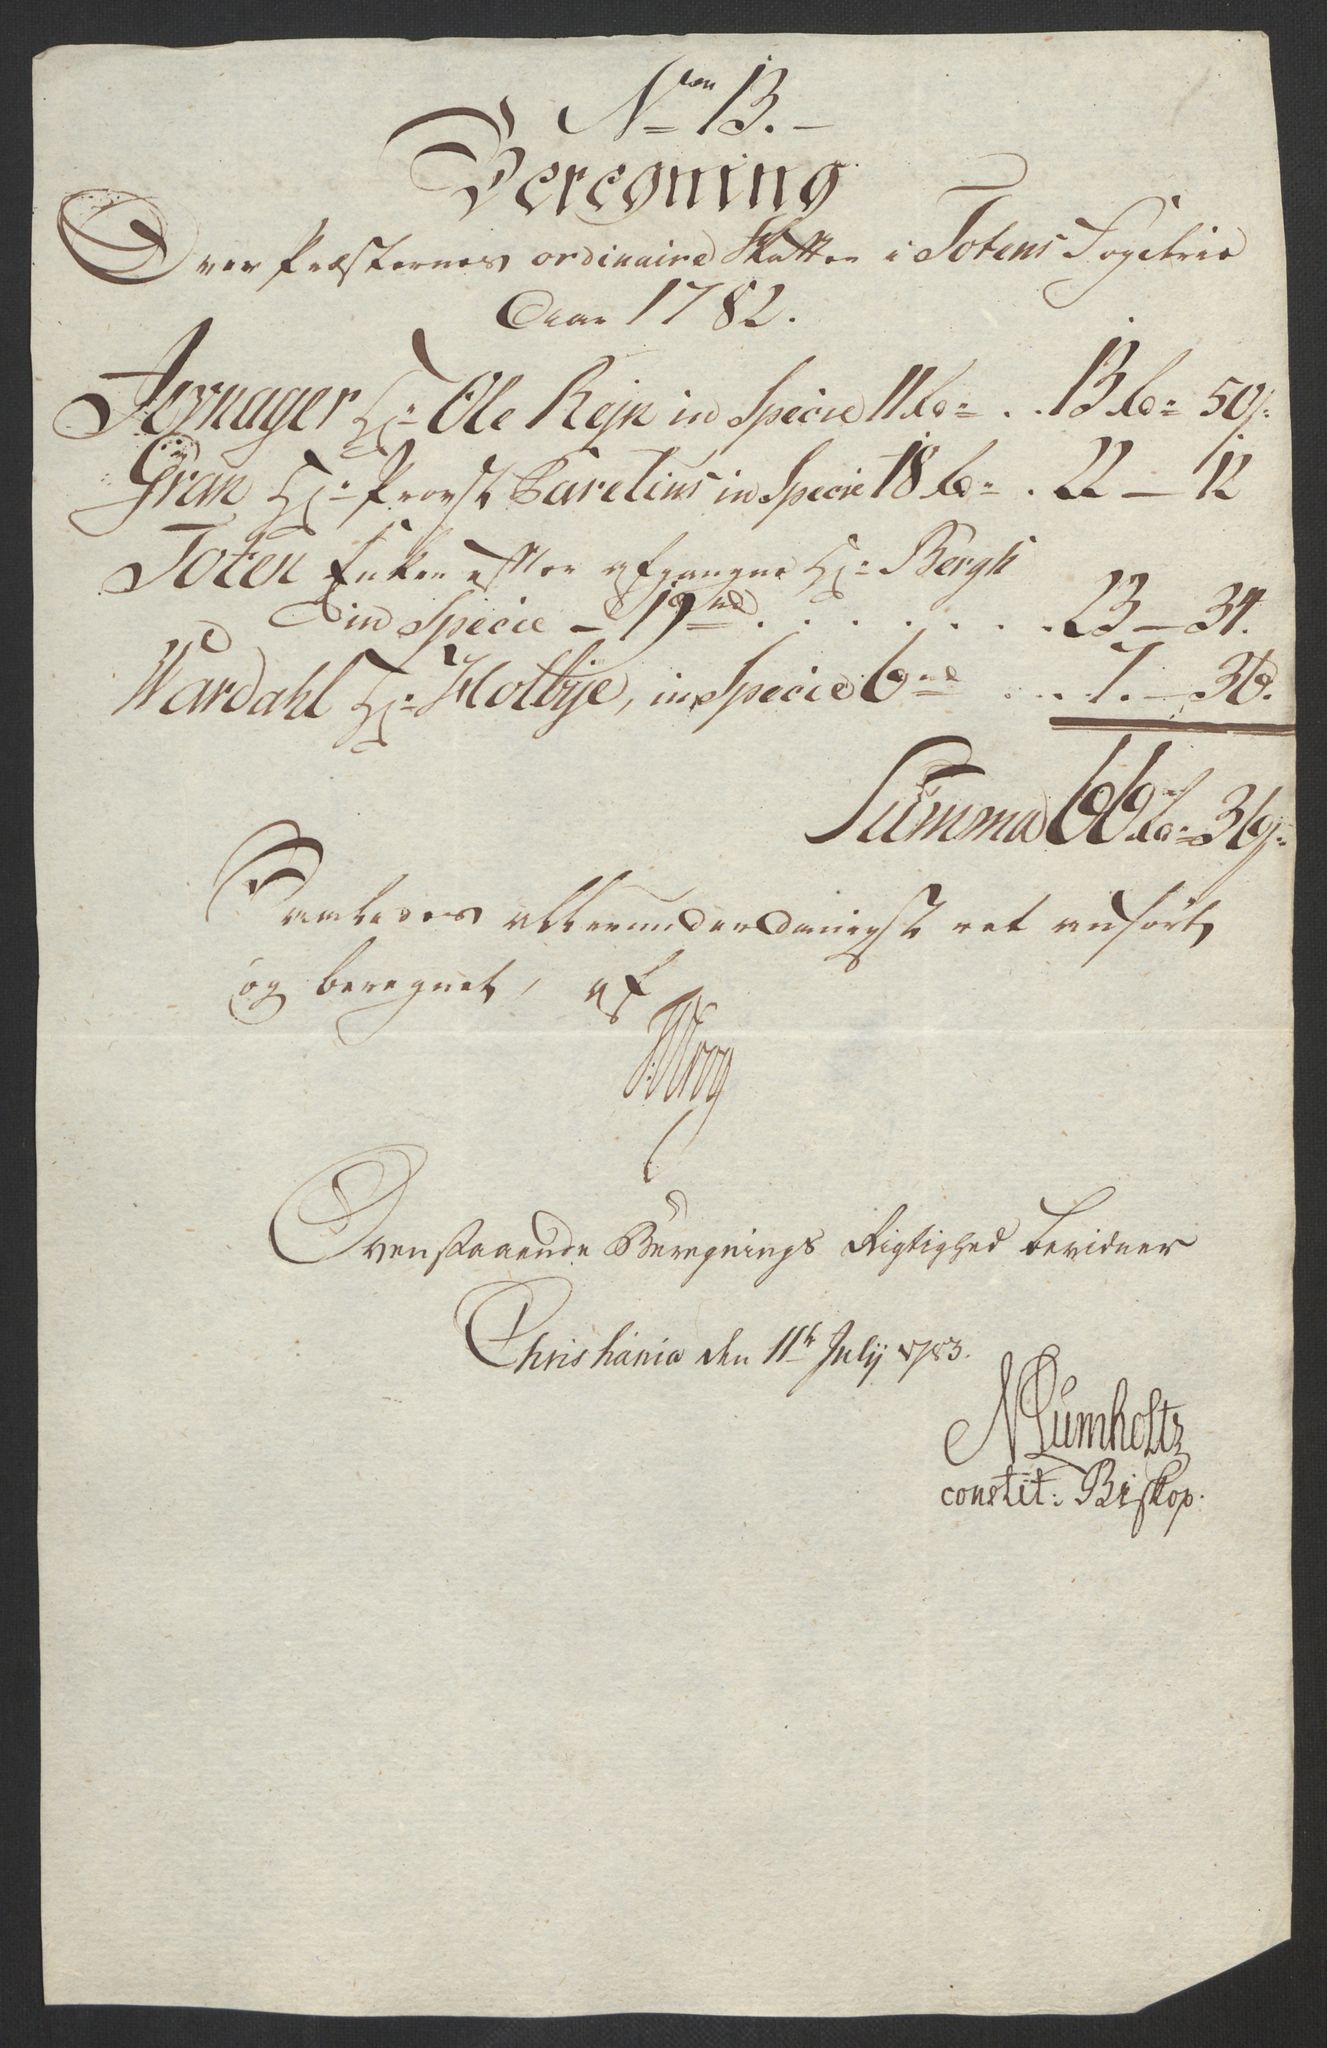 Nro 13.
Beregning
Over Præsternes ordinaire Skatter i Totens Fogderie
Aar 1782.
Jevnager Hr: Ole Rejn in Specie 11 rd: . . 13 rd: 50 s:
Gran Hr: Provst Baretius in Specie 18 rd: . 22 – 12
Toten Enken efter afgangne Hr: Bergh
in Specie – 19 rd . . . . . . . 23 – 34.
Wardahl Hr: Holbye, in Specie 6 rd . . . 7. – 36.
Summa 66 rd: 36 s:
Saaledes allerunderdanigst ret anført
og beregnet, af
Ovenstaaende Beregnings Rigtighed bevidner
Christiania den 11te Julij 1783.
N Lumholtz
constit: Biskop.